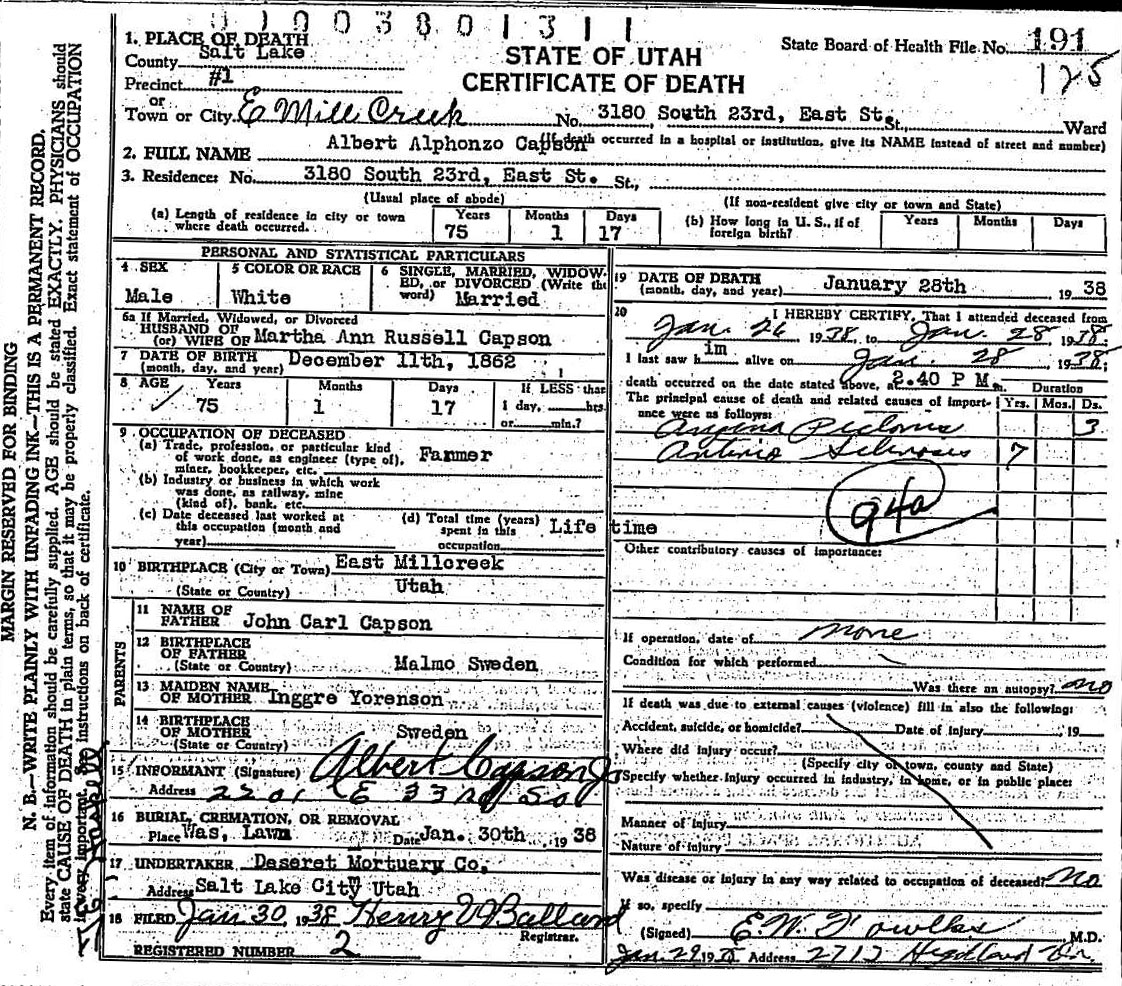 01003801311
1. PLACE OF DEATH
County Salt Lake
STATE OF UTAH
State Board of Health File No. 191
Precinct #1
CERTIFICATE OF DEATH
125
or
Town or City E Mill Creek No. 3180 South 23rd, East St. St., Ward
(If death occurred in a hospital or institution, give its NAME instead of street and number)
2. FULL NAME Albert Alphonzo Capson
3. Residence: No. 3180 South 23rd, East St. St.,
(Usual place of abode) (If non-resident give city or town and State)
(a) Length of residence in city or town where death occurred. Years 75 Months 1 Days 17
(b) How long in U. S., if of foreign birth? Years Months Days
PERSONAL AND STATISTICAL PARTICULARS
4 SEX Male
5 COLOR OR RACE White
6 SINGLE, MARRIED, WIDOW-
ED, or DIVORCED (Write the
word) Married
6a If Married, Widowed, or Divorced
HUSBAND OF
(or) WIFE OF Martha Ann Russell Capson
7 DATE OF BIRTH
(month, day, and year) December 11th, 1862
8 AGE Years Months Days If LESS than
75 1 17 1 day, hrs.
or min.?
9 OCCUPATION OF DECEASED
(a) Trade, profession, or particular kind
of work done, as engineer (type of),
miner, bookkeeper, etc. Farmer
(b) Industry or business in which work
was done, as railway, mine
(kind of), bank, etc.
(c) Date deceased last worked at
this occupation (month and
year)
(d) Total time (years)
spent in this
occupation Life time
10 BIRTHPLACE (City or Town) East Millcreek
(State or Country) Utah
PARENTS
11 NAME OF
FATHER John Carl Capson
12 BIRTHPLACE
OF FATHER
(State or Country) Malmo Sweden
13 MAIDEN NAME
OF MOTHER Inggre Yorenson
14 BIRTHPLACE
OF MOTHER
(State or Country) Sweden
15 INFORMANT (Signature) Albert Capson Jr
Address 2201 E 33rd So
16 BURIAL, CREMATION, OR REMOVAL
Place Was, Lawn Date Jan. 30th 1938
17 UNDERTAKER Deseret Mortuary Co,
Address Salt Lake City Utah
18 FILED Jan 30, 1938 Henry V Balland
Registrar.
REGISTERED NUMBER 2
19 DATE OF DEATH
(month, day, and year) January 28th 1938
20 I HEREBY CERTIFY, That I attended deceased from
Jan. 26 1938, to Jan. 28 1938;
I last saw him alive on Jan. 28 1938;
death occurred on the date stated above, a 2.40 P M m. Duration
The principal cause of death and related causes of import-
ance were as follows: Yrs. Mos. Ds.
Angina Pectoris 3
Arterio Sclerosis 7
94a
Other contributory causes of importance:
If operation, date of none
Condition for which performed
Was there an autopsy? no
If death was due to external causes (violence) fill in also the following:
Accident, suicide, or homicide? Date of injury 19
Where did injury occur?
(Specify city or town, county and State)
Specify whether injury occurred in industry, in home, or in public place:
Manner of injury
Nature of injury
Was disease or injury in any way related to occupation of deceased? No
If so, specify
(Signed) E. W. Fowlks M.D.
Jan. 29 19 Address 2712 Highland Dr.
MARGIN RESERVED FOR BINDING
N. B.—WRITE PLAINLY WITH UNFADING INK—THIS IS A PERMANENT RECORD.
Every item of information should be carefully supplied. AGE should be stated EXACTLY. PHYSICIANS should
state CAUSE OF DEATH in plain terms, so that it may be properly classified. Exact statement of OCCUPATION
is very important. See instructions on back of certificate.